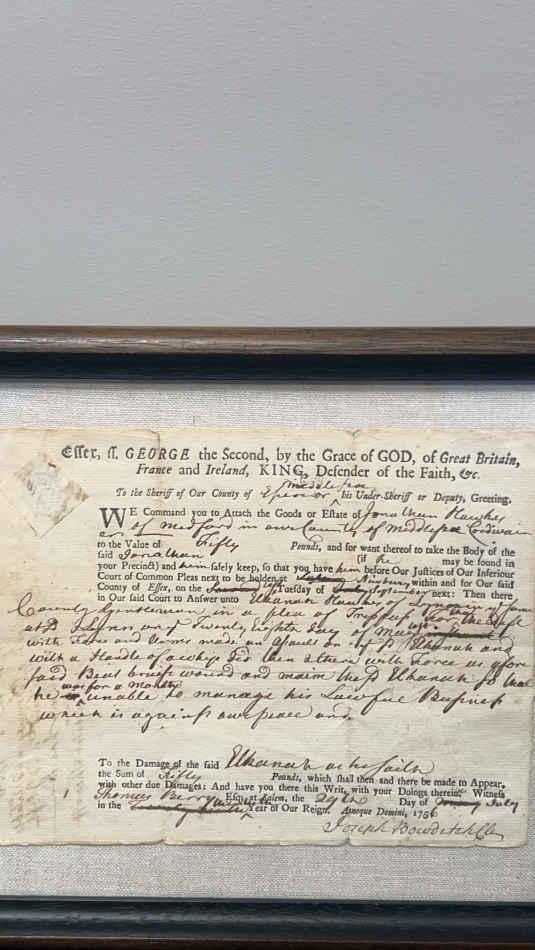 Essex, ss. GEORGE the Second, by the Grace of GOD, of Great Britain,
France and Ireland, KING, Defender of the Faith, &c.
Middlesex
To the Sheriff of Our County of his Under-Sheriff or Deputy, Greeting.
WE Command you to Attach the Goods or Estate of Jonathan Hawkes
of Medford in our County of Middlesex Cordwain
er
to the Value of Fifty Pounds, and for want thereof to take the Body of the
said Jonathan (if he may be found in
your Precinct) and him safely keep, so that you have him before Our Justices of Our Inferiour
Court of Common Pleas next to be holden at Newbury within and for Our said
County of Essex, on the last Tuesday of September next: Then there
in Our said Court to Answer unto Elkanah Hawkes of in said
County Gentleman in a plea of Trespass for that the
at Lynn on Twenty Eighth day of May
with Force and Arms made an Assault on ye sd Elkanah and
with a Handle of a whip did then & there with Force as afore
said Beat bruise wound and maim the sd Elkanah so that
he was for a month unable to manage his Lawful Business
which is against our peace and
To the Damage of the said Elkanah as he saith
the Sum of Fifty Pounds, which shall then and there be made to Appear,
with other due Damages: And have you there this Writ, with your Doings therein. Witness
Thomas Berry Esq; at Salem, the 29th Day of July
in the Year of Our Reign. Annoque Domini, 1756
Joseph Bowditch Cler